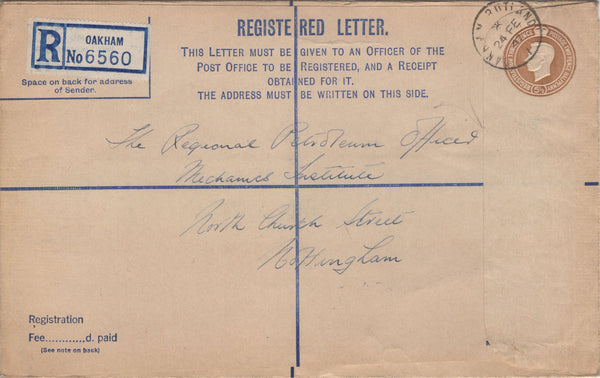 R OAKHAM
No 6560
Space on back for address
of Sender.
REGISTERED LETTER.
THIS LETTER MUST BE GIVEN TO AN OFFICER OF THE
POST OFFICE TO BE REGISTERED, AND A RECEIPT
OBTAINED FOR IT.
THE ADDRESS MUST BE WRITTEN ON THIS SIDE.
OAKHAM RUTLAND
24 FE
The Regional Petroleum Officer
Mechanics Institute
North Church Street
Nottingham
Registration
Fee............d. paid
(See note on back)